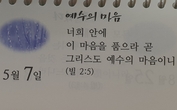 예수의 마음
너희 안에
이 마음을 품으라 곧
그리스도 예수의 마음이니
(빌 2:5)
5월 7일